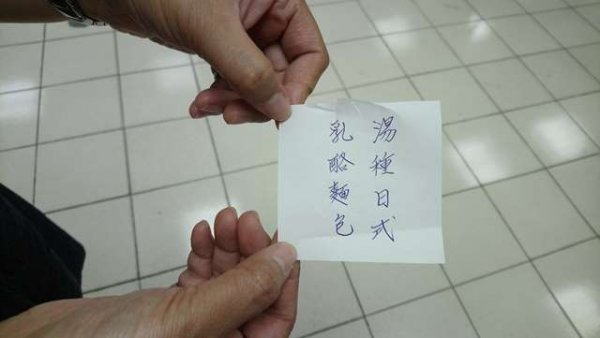 湯種日式
乳酪麵包